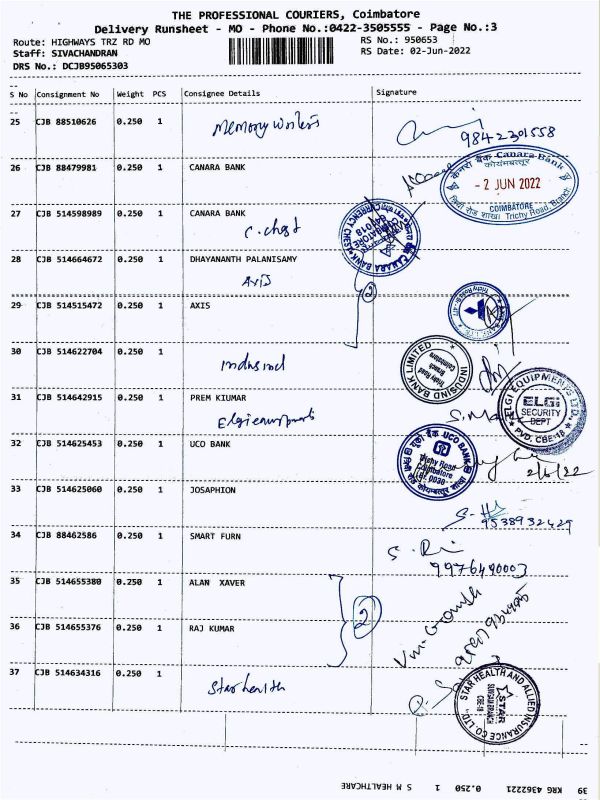 THE PROFESSIONAL COURIERS, Coimbatore
Delivery Runsheet - MO - Phone No.:0422-3505555 - Page No.:3
Route: HIGHWAYS TRZ RD MO
RS No.: 950653
Staff: SIVACHANDRAN
RS Date: 02-Jun-2022
DRS No.: DCJB95065303
S No Consignment No Weight PCS Consignee Details Signature
25 CJB 88510626 0.250 1
9842301558
26 CJB 88479981 0.250 1 CANARA BANK
केनरा बैंक Canara Bank
कोयम्बत्तूर
- 2 JUN 2022
COIMBATORE
Trichy Road Branch
27 CJB 514598989 0.250 1 CANARA BANK
C. chest
CANARA BANK CURRENCY CHEST
28 CJB 514664672 0.250 1 DHAYANANTH PALANISAMY
Axis
2
29 CJB 514515472 0.250 1 AXIS
30 CJB 514622704 0.250 1
Indusind
INDUSIND BANK LIMITED
Trichy Road
Branch
Coimbatore
31 CJB 514642915 0.250 1 PREM KIUMAR
ELGI EQUIPMENTS LTD.
ELGI
SECURITY
DEPT
PVD. CBE-18
32 CJB 514625453 0.250 1 UCO BANK
यूको बैंक UCO BANK
Trichy Road
Coimbatore
2/6/22
33 CJB 514625060 0.250 1 JOSAPHION
9538932429
34 CJB 88462586 0.250 1 SMART FURN
9976490003
35 CJB 514655380 0.250 1 ALAN XAVER
2
36 CJB 514655376 0.250 1 RAJ KUMAR
37 CJB 514634316 0.250 1
Star health
STAR HEALTH AND ALLIED INSURANCE CO LTD.
STAR
CBE-18
39 KRG 4362221 0.250 1 S M HEALTHCARE